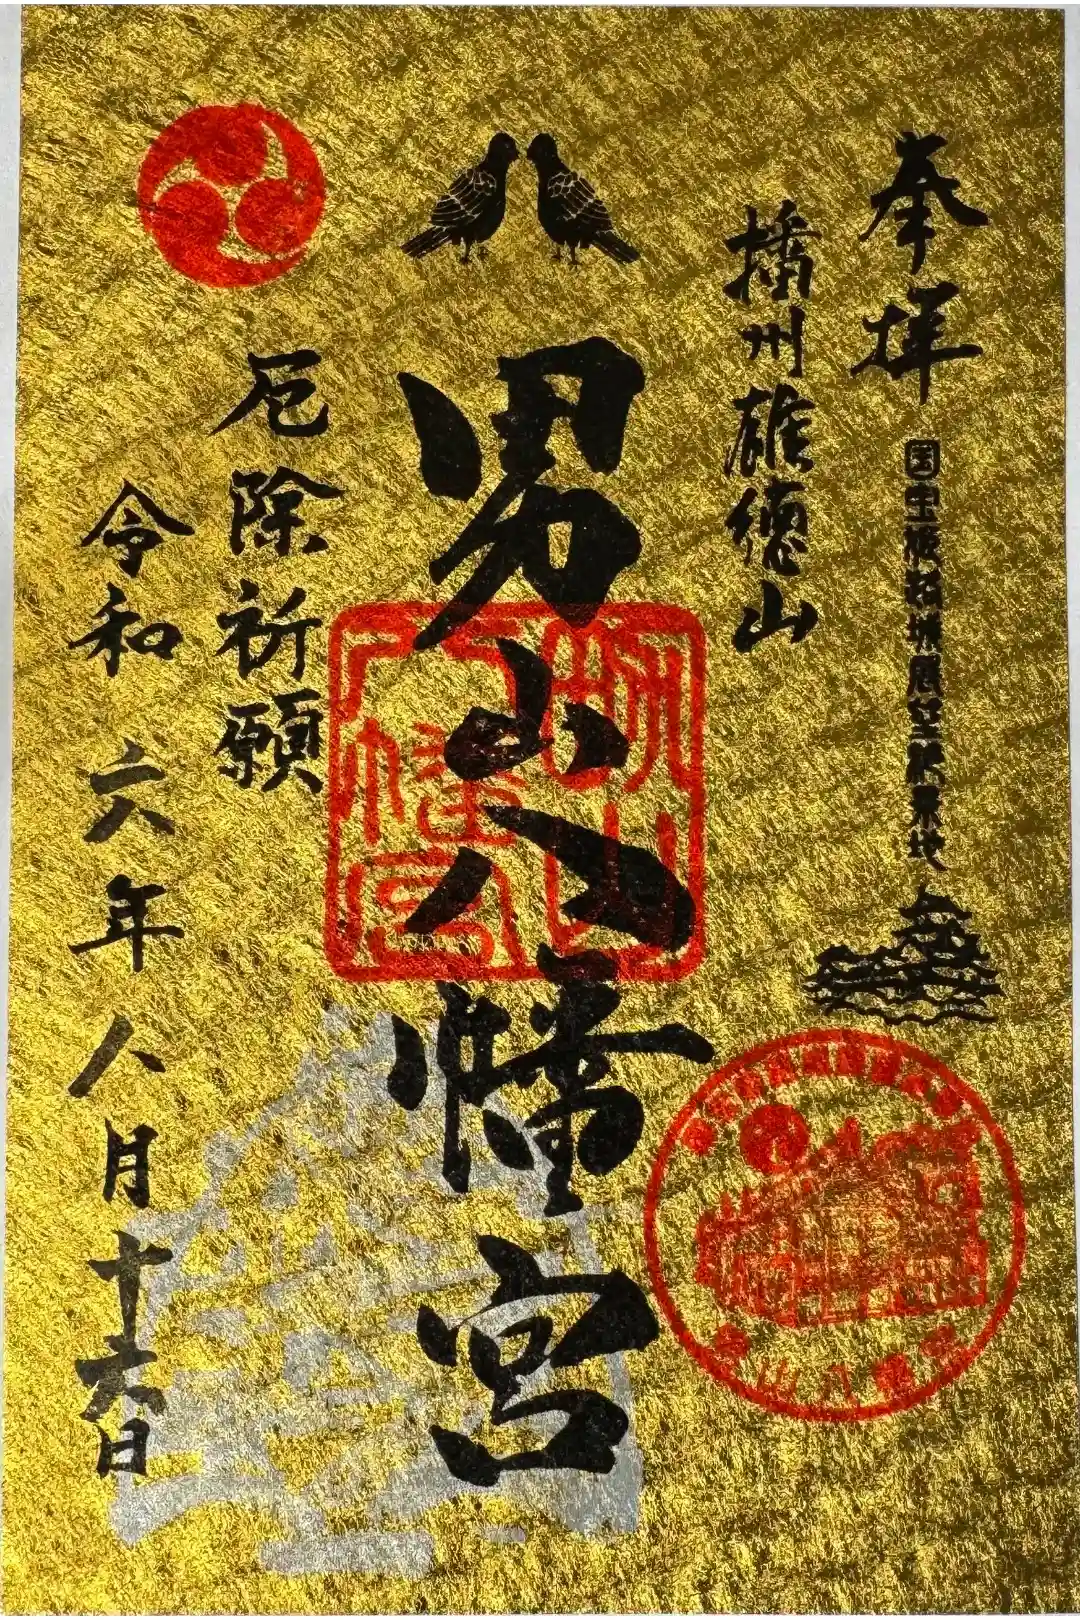 奉拝
国宝姫路城展望絶景地
播州雄徳山
男山八幡宮
厄除祈願
令和六年八月十六日
男山八幡宮
男山八幡宮